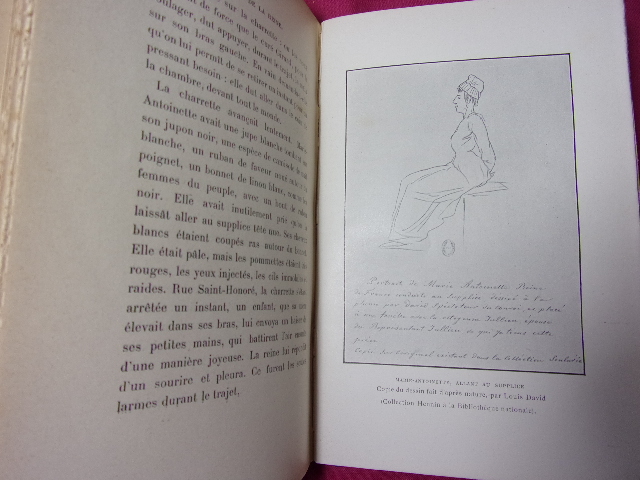 DE LA REINE.
sur la charrette
de force que le
soulager, dut appuyer, durant le trajet,
sur son bras gauche. En vain
qu'on lui permit de se retirer un instant
pressant besoin : elle dut aller dans
la chambre, devant tout le monde.
La charrette avançait lentement. Marie-
Antoinette avait une jupe blanche
son jupon noir, une espèce de camisole
blanche, un ruban de faveur
poignet, un bonnet de linon blanc,
femmes du peuple, avec un bout de
noir. Elle avait inutilement prié qu'on
laissât aller au supplice tête nue. Ses cheveux
blancs étaient coupés ras autour du bonnet.
Elle était pâle, mais les pommettes étaient
rouges, les yeux injectés, les cils immobiles et
raides. Rue Saint-Honoré, la charrette s'étant
arrêtée un instant, un enfant, que sa mère
élevait dans ses bras, lui envoya un baiser de
ses petites mains, qui battirent
d'une manière joyeuse. La reine lui répondit
d'un sourire et pleura. Ce furent les seules
larmes durant le trajet.
Portrait de Marie Antoinette Reine
de France conduite au supplice dessiné à la
plume par David Spectateur du convoi, et placé
à une fenêtre avec la citoyenne Jullien, épouse
du Représentant Jullien de qui je tiens cette
pièce
Copie sur l'original existant dans la Collection Soulavie
MARIE-ANTOINETTE ALLANT AU SUPPLICE
Copie du dessin fait d'après nature, par Louis David
(Collection Hennin à la Bibliothèque nationale).